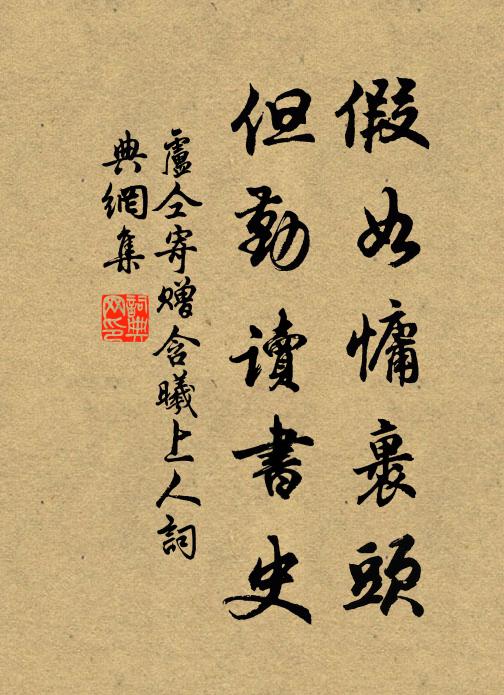 假如慵裹頭
但勤讀書史
盧仝寄贈含曦上人詞
典網集
詞典網印